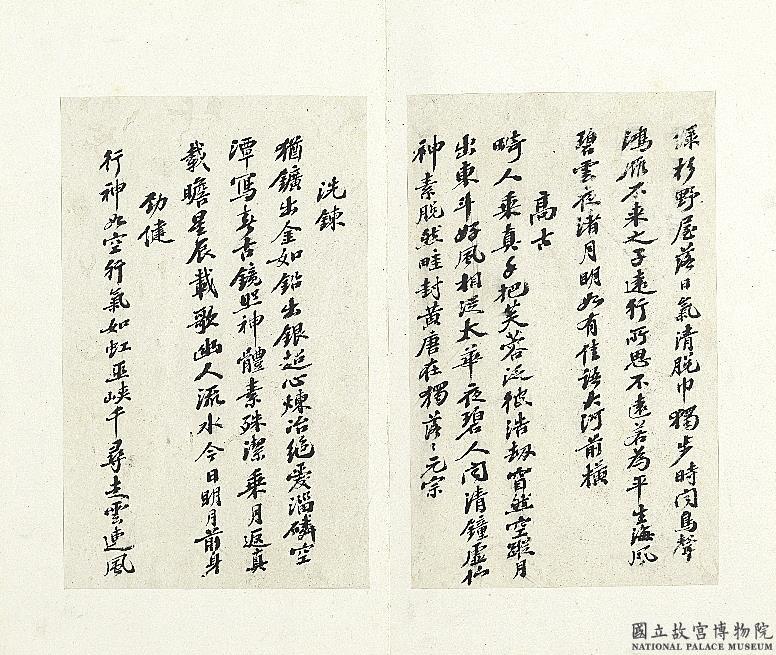 綠杉野屋落日氣清脫巾獨步時聞鳥聲
鴻雁不來之子遠行所思不遠若為平生海風
碧雲夜渚月明如有佳語大河前橫
高古
畸人乘真手把芙蓉泛彼浩劫窅然空蹤月
出東斗好風相從太華夜碧人聞清鐘虛佇
神素脫然畦封黃唐在獨落〻元宗
洗鍊
猶鑛出金如鉛出銀超心煉冶絕愛淄磷空
潭寫春古鏡照神體素殊潔乘月返真
載瞻星辰載歌幽人流水今日明月前身
勁健
行神如空行氣如虹巫峽千尋走雲連風
國立故宮博物院
NATIONAL PALACE MUSEUM